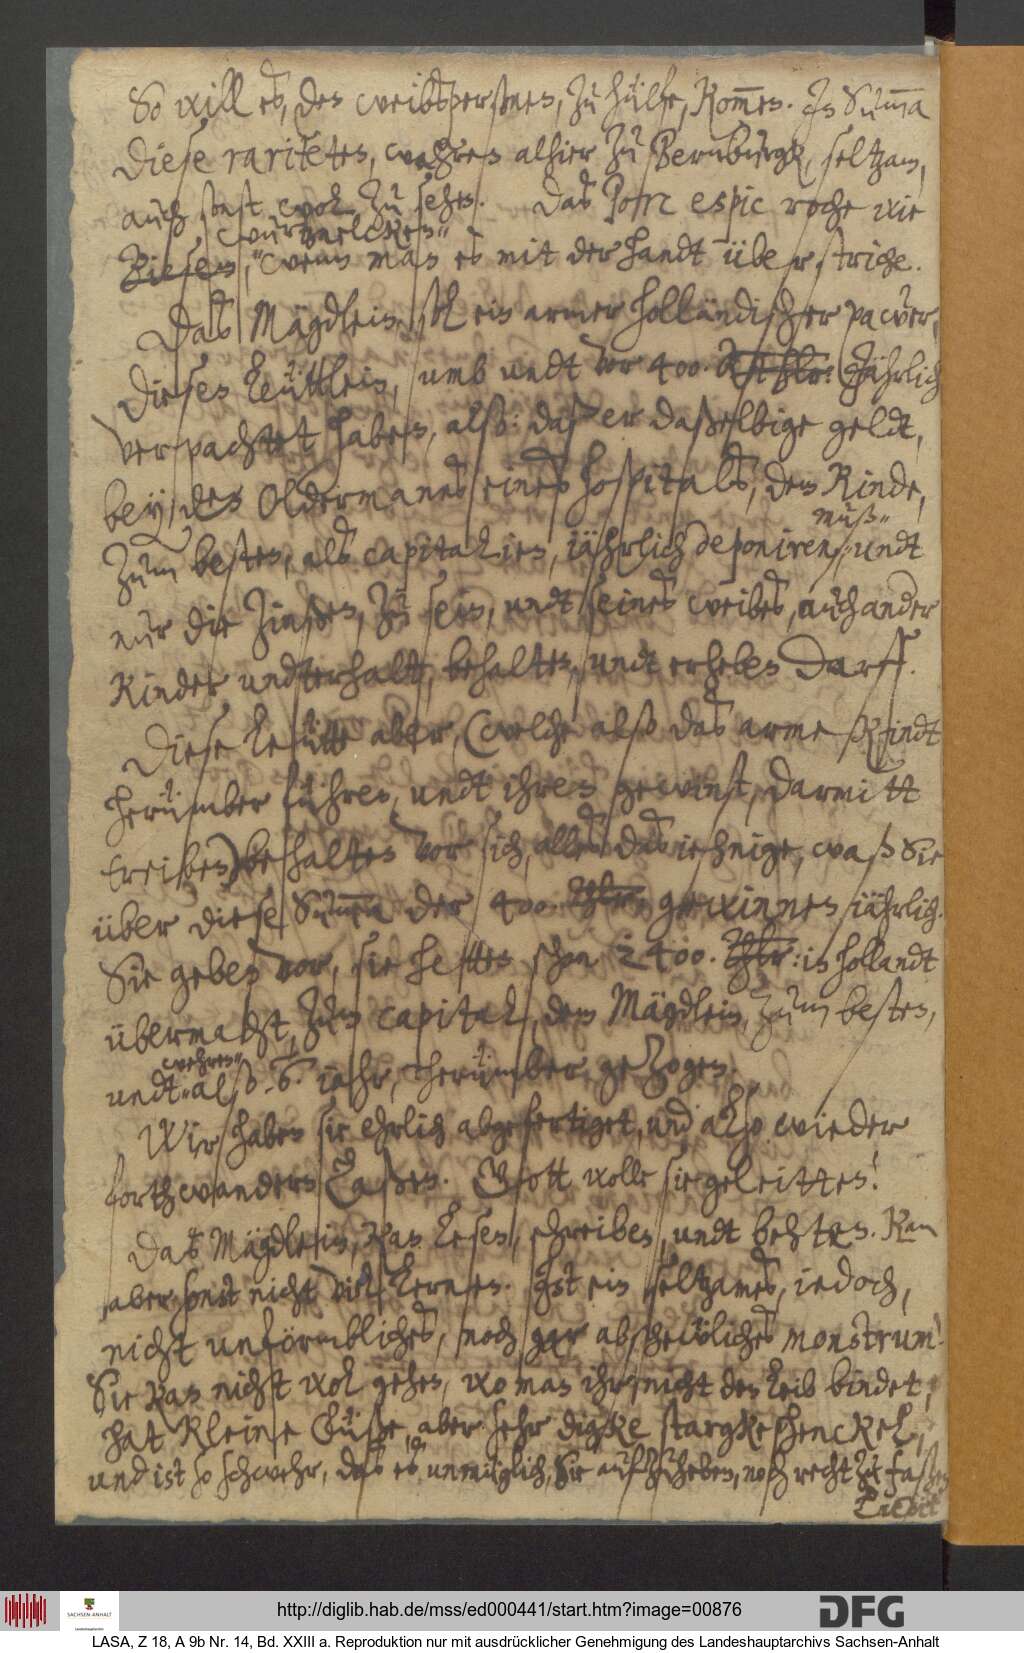 So will es, den weibspersonen, zu hülfe, kom̅en. In Sum̅a
diese raritetèn, wahren alhier zu Bernburgk, seltzam,
auch sonst wol zu sehen. Das Pome espic roche wie
würtznelcken"
Biesem," wenn man es mit der handt überstriche.
Das Mägdlein sol ein armer holländischer pawer,
diesen leüttlein, umb undt vor 400. Rthlr: Jährlich
verpachtet haben, also: daß er daßelbige geldt,
bey den Oldermanns eines hospitals, dem Kinde,
muß"
zum besten, als capitalien, iährlich deponiren" undt
nur die zinßen, zu sein, undt seines weibes, auch ander
Kinder undterhalt, behalten, undt erheben darff.
Diese leütte aber, (welche also das arme Kindt
herümber führen, undt ihren gewinst, darmitt
treiben) behalten vor sich, alles das iehnige, waß Sie
über diese Sum̅a der 400. Thlr: gewinnen iährlich.
Sie geben vor, sie hetten schon 2400. Thlr: in hollandt
übermacht, zum capital, dem Mägdlein, zum besten,
wehren"
undt" also 6. iahr, herümber gezogen.
Wir haben sie ehrlich abgefertiget, und also wieder
forth wandern laßen. Gott wolle sie geleitten!
Das Mägdlein, kan lesen, schreiben, undt behten. Kan
aber sonst nicht viel lernen. Ist ein seltzames, iedoch,
nicht unförmbliches, noch gar abscheüliches monstrum!
Sie kan nicht wol gehen, wo man ihr nicht den leib bindet,
hat kleine Füße, aber sehr digke stargke schenckel,
und ist so schwehr, das es unmüglich, Sie aufzuheben, noch recht zu faßen